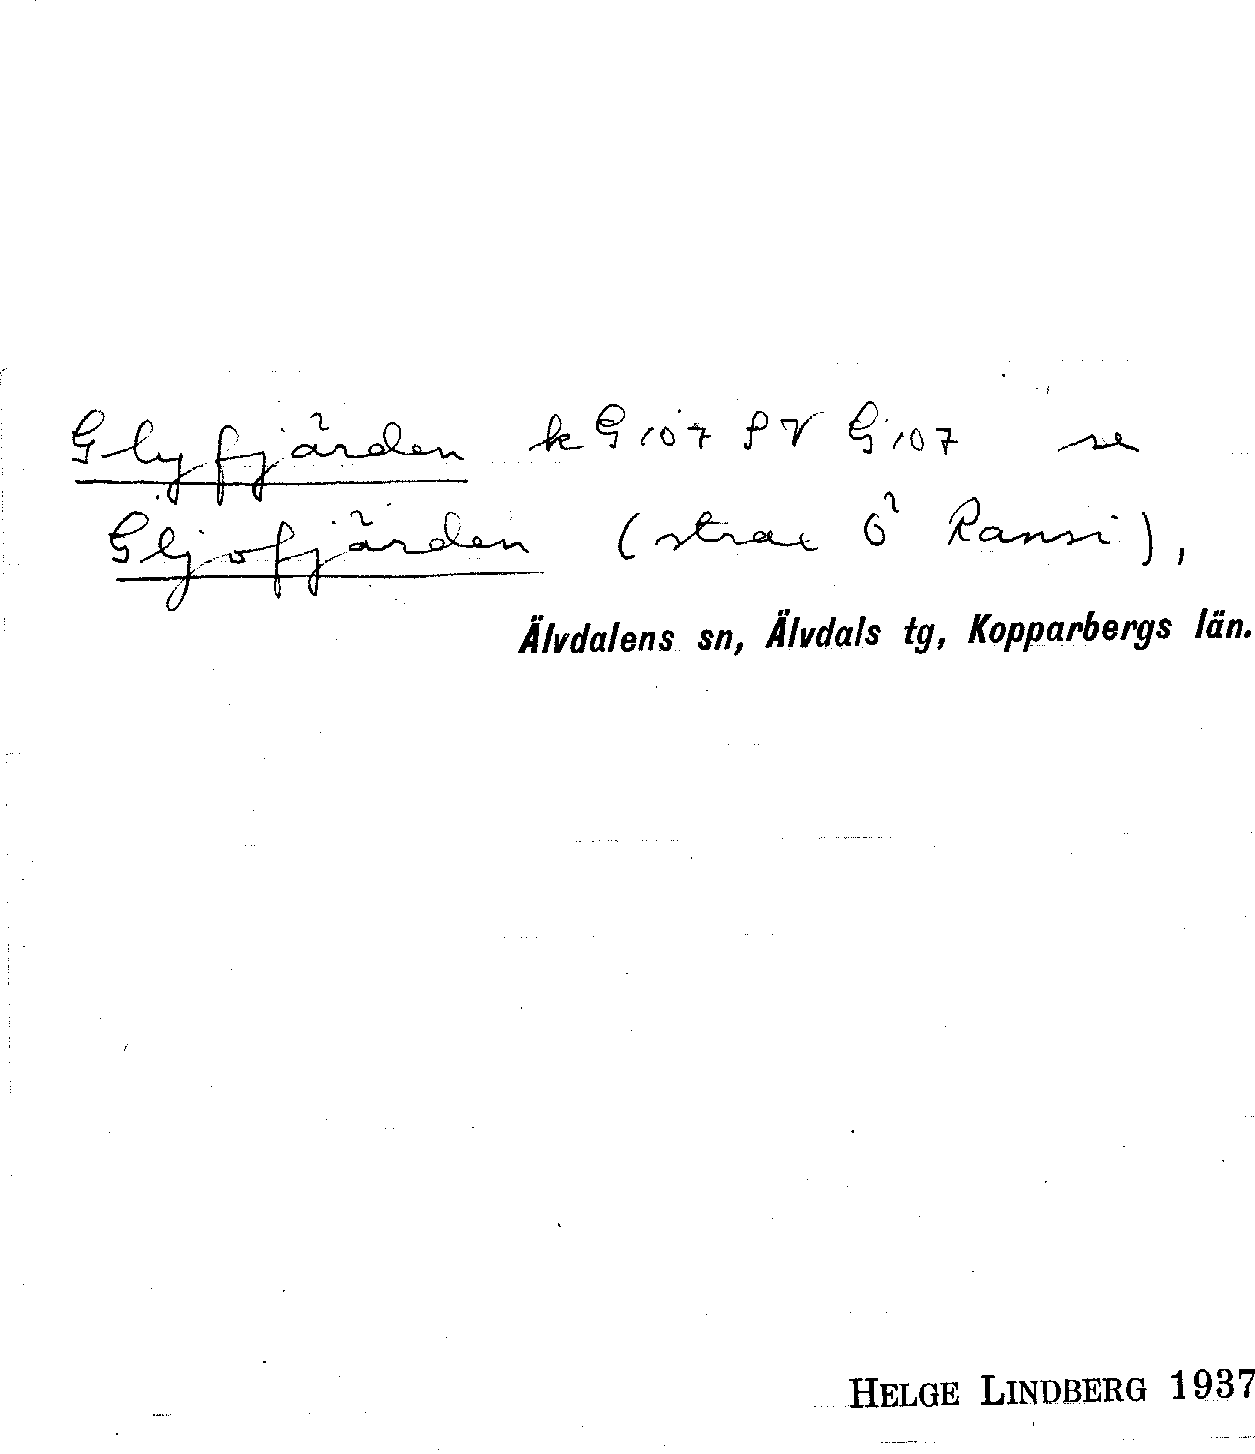 Glyfjärden k G 107 f V G 107 se
Gljofjärden (strax Ö Ransi),
Älvdalens sn, Älvdals tg, Kopparbergs län.
HELGE LINDBERG 1937